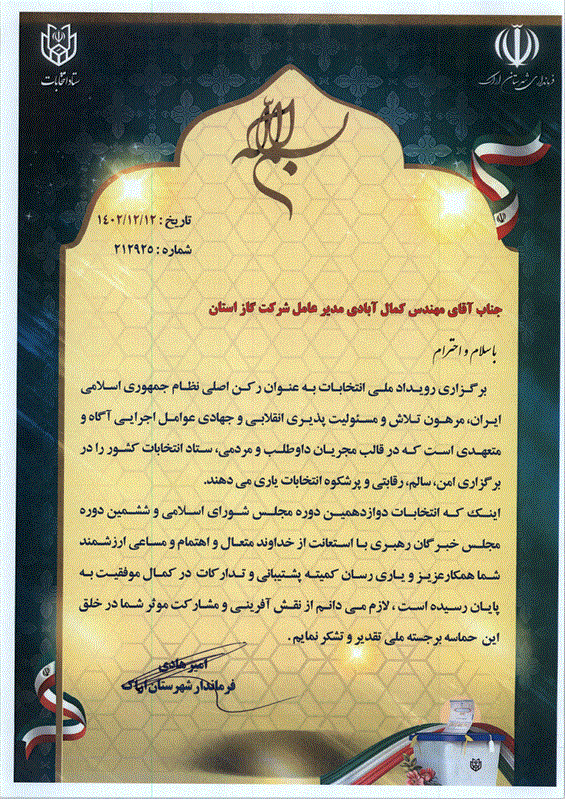 ستاد انتخابات
فرمانداری شهرستان اراک
بسم الله
تاریخ : ۱۴۰۲/۱۲/۱۲
شماره : ۲۱۲۹۲۵
جناب آقای مهندس کمال آبادی مدیر عامل شرکت گاز استان
با سلام و احترام
برگزاری رویداد ملی انتخابات به عنوان رکن اصلی نظام جمهوری اسلامی
ایران، مرهون تلاش و مسئولیت پذیری انقلابی و جهادی عوامل اجرایی آگاه و
متعهدی است که در قالب مجریان داوطلب و مردمی، ستاد انتخابات کشور را در
برگزاری امن، سالم، رقابتی و پرشکوه انتخابات یاری می دهند.
اینک که انتخابات دوازدهمین دوره مجلس شورای اسلامی و ششمین دوره
مجلس خبرگان رهبری با استعانت از خداوند متعال و اهتمام و مساعی ارزشمند
شما همکار عزیز و یاری رسان کمیته پشتیبانی و تدارکات در کمال موفقیت به
پایان رسیده است ، لازم می دانم از نقش آفرینی و مشارکت موثر شما در خلق
این حماسه برجسته ملی تقدیر و تشکر نمایم .
امیر هادی
فرماندار شهرستان اراک